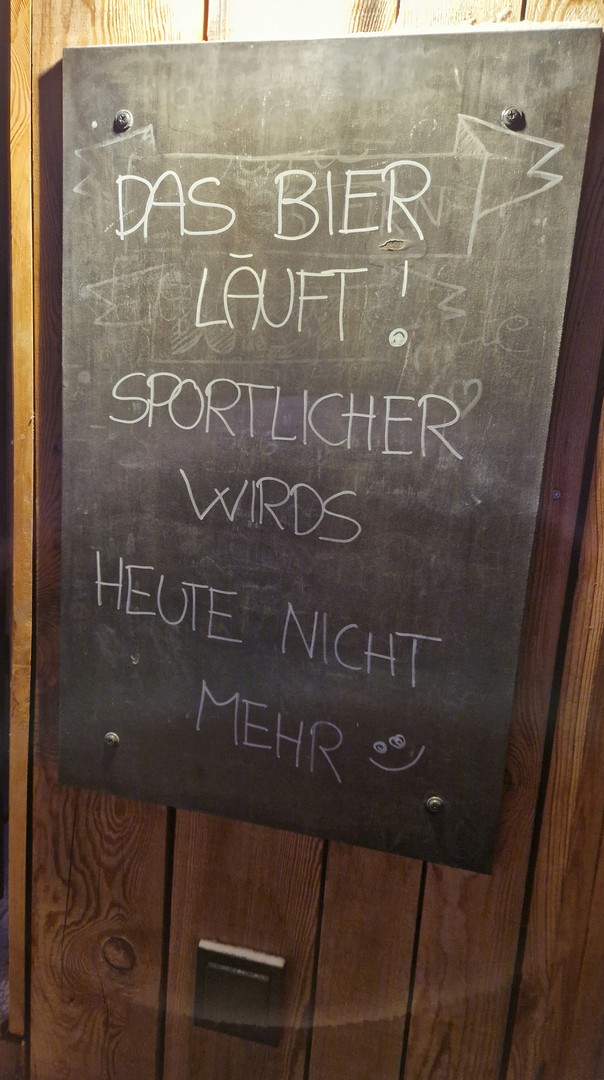 DAS BIER
LÄUFT!
SPORTLICHER
WIRDS
HEUTE NICHT
MEHR